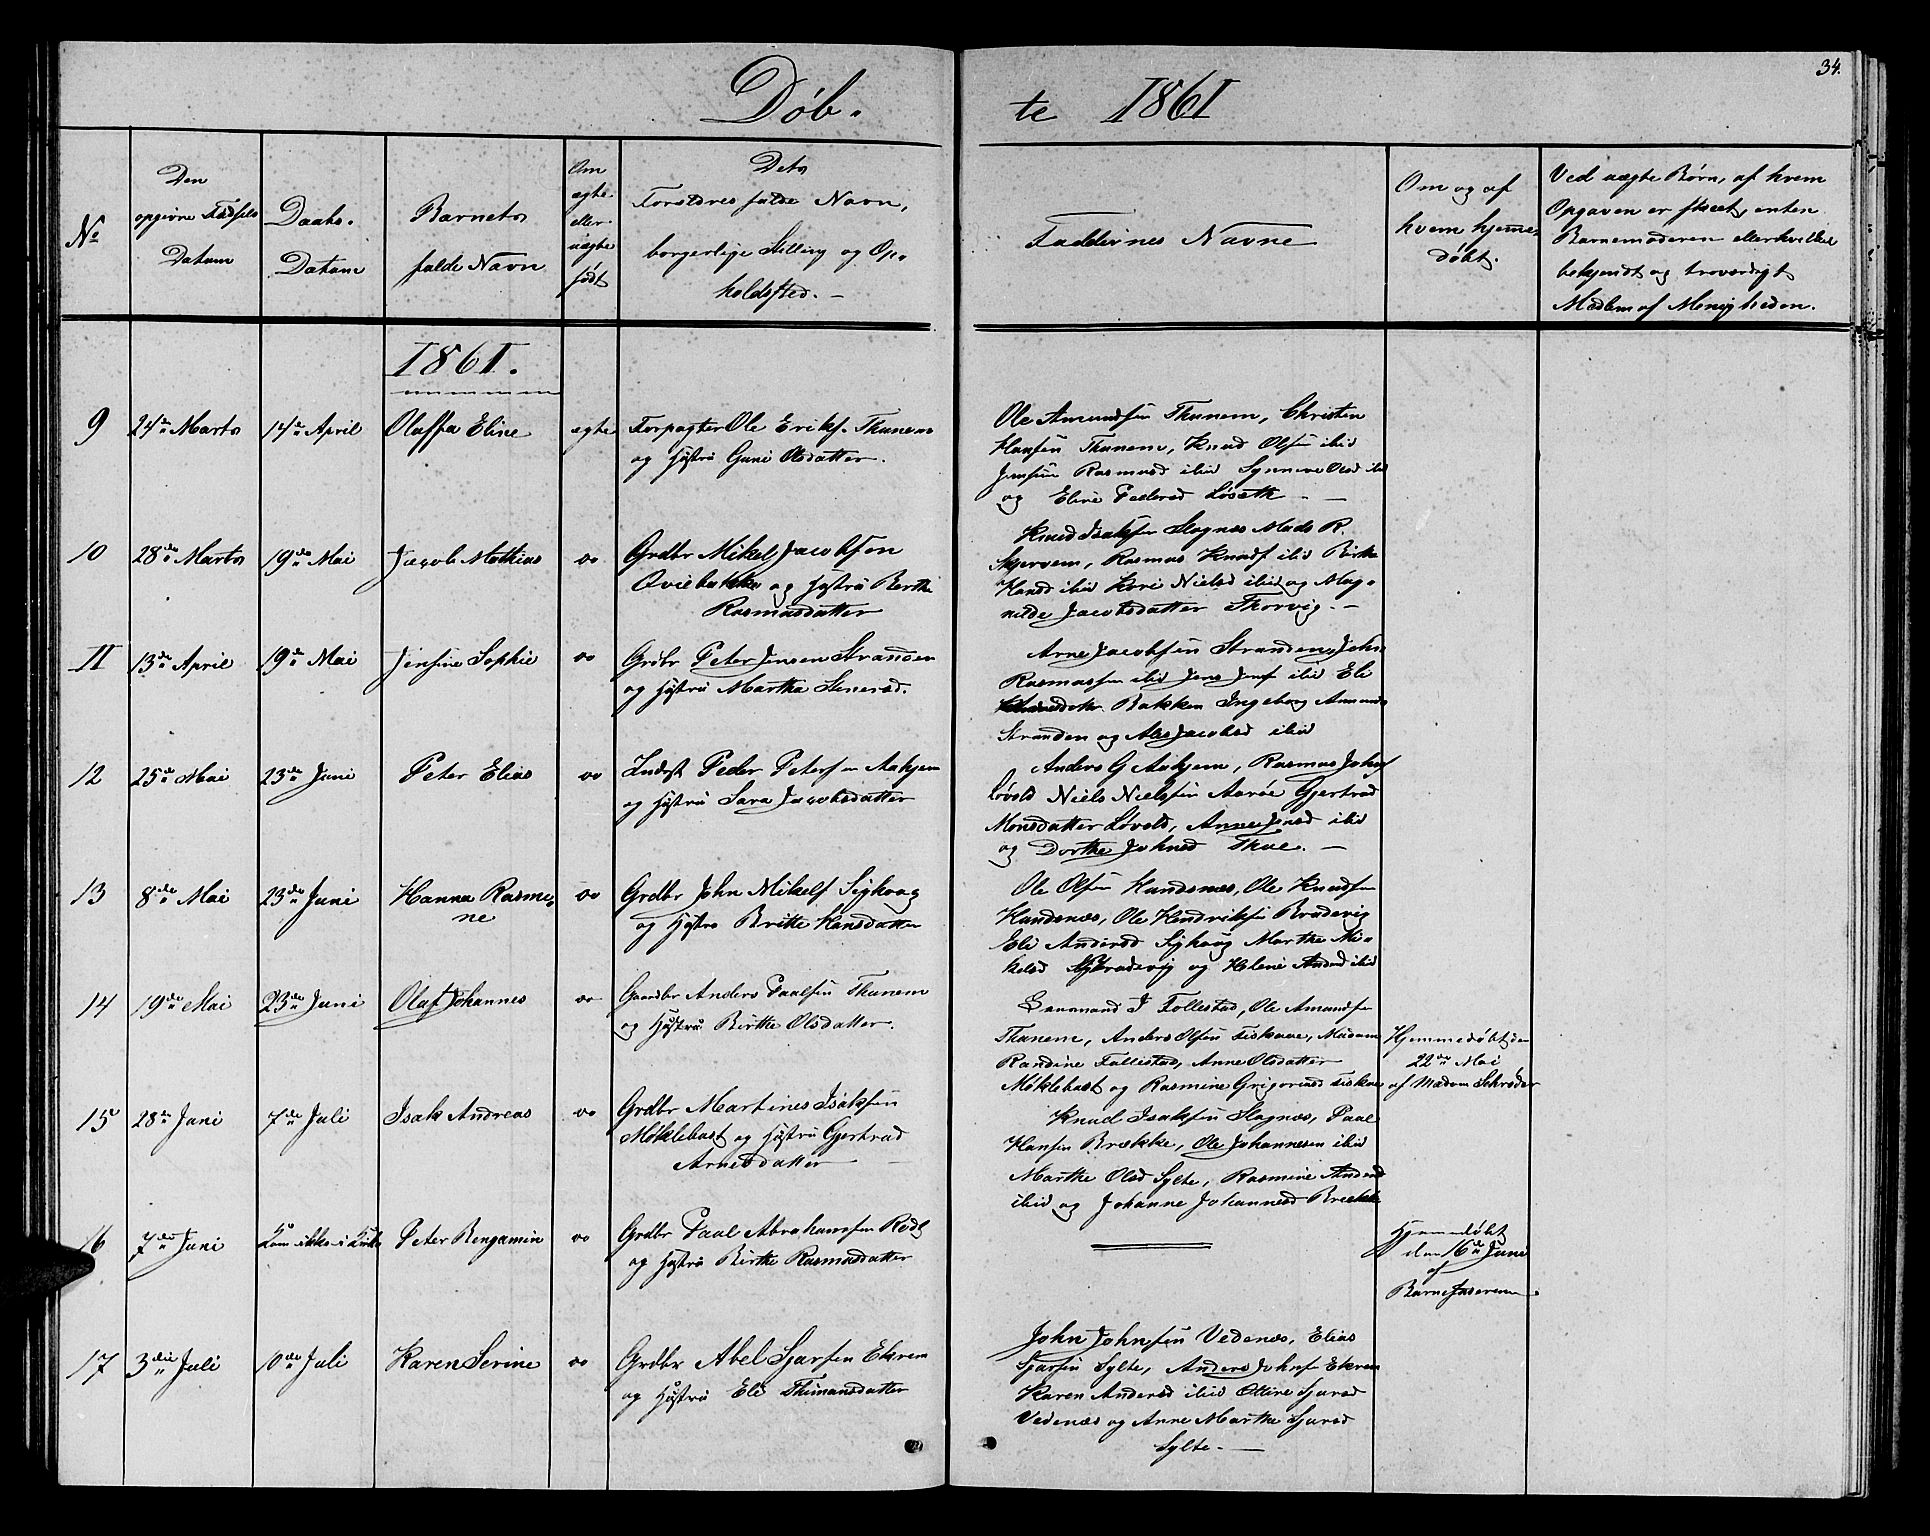 34.
Døb-
te 1861
No
Den
opgivne Fødsels
Datum
Daabs-
Datum
Barnets
fulde Navn
Om
ægte
eller
uægte
født
Dets
Forældres fulde Navn,
borgerlige Stilling og Op-
holdssted. -
Faddernes Navne
Om og af
hvem hjemme-
døbt.
Ved uægte Børn, af hvem
Opgaven er skeet, enten
Barnemoderen eller hvilket
bekjendt og troværdigt
Medlem af Menigheden.
1861.
9 24de Marts 14de April Olaffa Eline ægte Forpagter Ole Eriks. Thunem
og Hustru Guni Olsdatter.
Ole Amundsen Thunem, Christen
Hansen Thunem, Knud Olsen ibid
Jensine Rasmusd ibid Synneve Olsd ibid
og Eline Pedersd Løseth
10 28de Marts 19de Mai Jacob Mathias oo Grdbr Mikel Jacobsen
Oviebakke og Hustru Berthe
Rasmusdatter
Knud Isaksen Slagnæs Mads R.
Skjervem, Rasmus Knuds ibid Birthe
Hansd ibid Kari Nielsd ibid og Mag-
nilde Jacobsdatter Thorvig. -
11 13de April 19de Mai Jensine Sophie oo Grdbr Peter Jensen Stranden
og Hustru Martha Stenersd.
Arne Jacobsen Stranden, John
Rasmussen ibid Jens Jens ibid Eli
Bakken Ingeborg Amunds
Stranden og Ales Jacobsd ibid
12 25de Mai 23de Juni Peter Elias oo Inderst Peder Petersen Aakjem
og Hustru Sara Jacobsdatter
Anders G Aakjem, Rasmus Johns
Løvold Niels Nielsen Aarøe Gjertrud
Monsdatter Løvold, Anne Jensd ibid
og Dorthe Johnsd Thue. -
13 8de Mai 23de Juni Hanna Rasmi-
ne oo Grdbr John Mikels Sjghoug
og Hustru Britte Hansdatter
Ole Olsen Hundsnæs, Ole Knudsen
Hundsnæs, Ole Hendriksen Bradevig
Eli Andersd Sjghoug Marthe Mi-
kelsd Bradevig og Helene Andersd ibid
14 19de Mai 23de Juni Olaf Johannes oo Gaardbr Anders Paalsen Thunem
og Hustru Birthe Olsdatter.
Lensmand I Follestad, Ole Amundsen
Thunem, Anders Olsen Fiskaae, Madam
Randine Follestad, Anne Olsdatter
Møklebust og Rasmine Grigoriusd Fiskaae
Hjemmedøbt den
22de Mai
af Madam Schrøder
15 28de Juni 7de Juli Isak Andreas oo Grdbr Martines Isaksen
Møklebust og Hustru Gjertrud
Arnesdatter
Knud Isaksen Slagnæs, Paal
Hansen Brække, Ole Johannesen ibid
Marthe Olsd Sylte, Rasmine Andersd
ibid og Johanne Johannesd Brække
16 7de Juni Kom ikke i Kirke Peter Benjamin oo Grdbr Paal Abrahamsen Røds
og Hustru Birthe Rasmusdatter
Hjemmedøbt
den 16de Juni
af
Barnefaderen.
17 3die Juli 10de Juli Karen Serine oo Grdbr Abel Sjursen Ekrem
og Hustru Eli Thimansdatter
John Johnsen Vedenæs, Elias
Sjursen Sylte, Anders Johns Ekrem
Karen Andersd ibid Olline Sjursd
Vedenæs og Anne Marthe Sjursd
Sylte. -